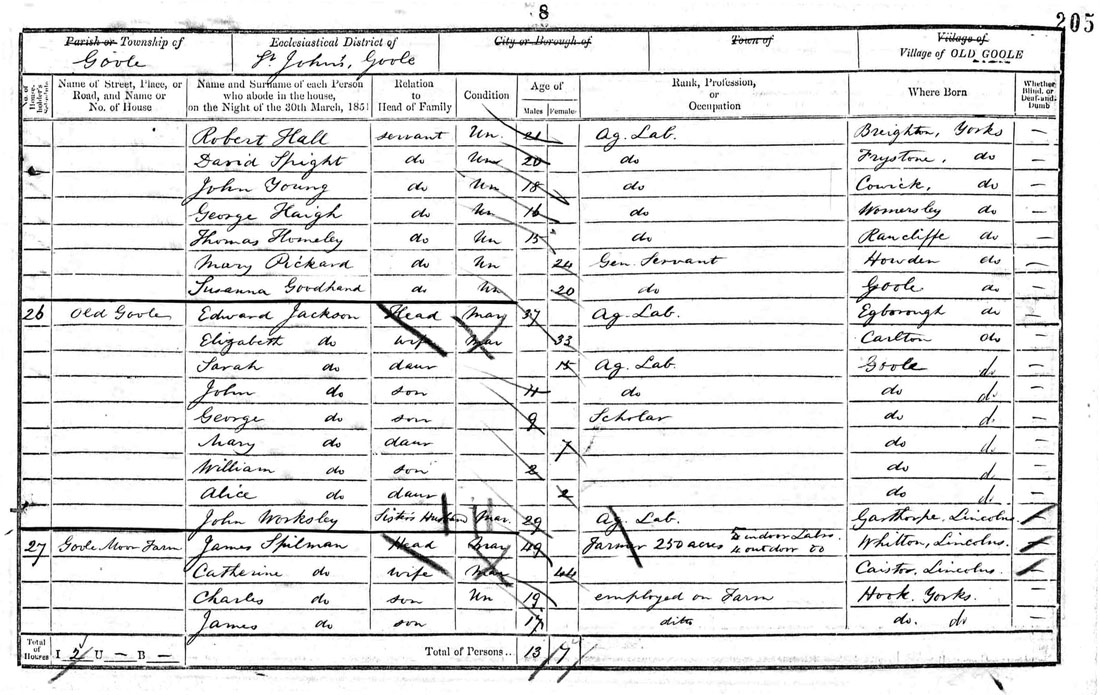 8
205
Parish or Township of Ecclesiastical District of City or Borough of Town of Village of
Goole St John's, Goole Village of OLD GOOLE
No. of House-holder's Schedule Name of Street, Place, or Road, and Name or No. of House Name and Surname of each Person who abode in the house, on the Night of the 30th March, 1851 Relation to Head of Family Condition Age of Males Females Rank, Profession, or Occupation Where Born Whether Blind, or Deaf-and-Dumb
Robert Hall servant Un. 21 Ag. Lab. Breighton, Yorks —
David Spright do Un 20 do Frystone, do —
John Young do Un 18 do Cowick, do —
George Haigh do Un 16 do Womersley do —
Thomas Homeley do Un 15 do Rawcliffe do —
Mary Pickard do Un 24 Gen. Servant Howden do —
Susanna Goodhand do Un 20 do Goole do —
26 Old Goole Edward Jackson Head Mar 37 Ag. Lab. Egborough do —
Elizabeth do wife Mar 33 Carlton do —
Sarah do daur 15 Ag. Lab. Goole do —
John do son do do do —
George do son 9 Scholar do do —
Mary do daur 7 do do —
William do son 2 do do —
Alice do daur 2 do do —
John Worksley Sister's Husband Mar. 29 Ag. Lab. Garthorpe, Lincolns. —
27 Goole Moor Farm James Spilman Head Mar 49 Farmer 250 acres indoor Labs. 4 outdoor do Whitton, Lincolns. —
Catherine do wife Mar 44 Caistor, Lincolns. —
Charles do son Un 19 employed on Farm Hook. Yorks. —
James do son 17 ditto do. do —
Total of Houses I 2 U — B — Total of Persons .. 13 7